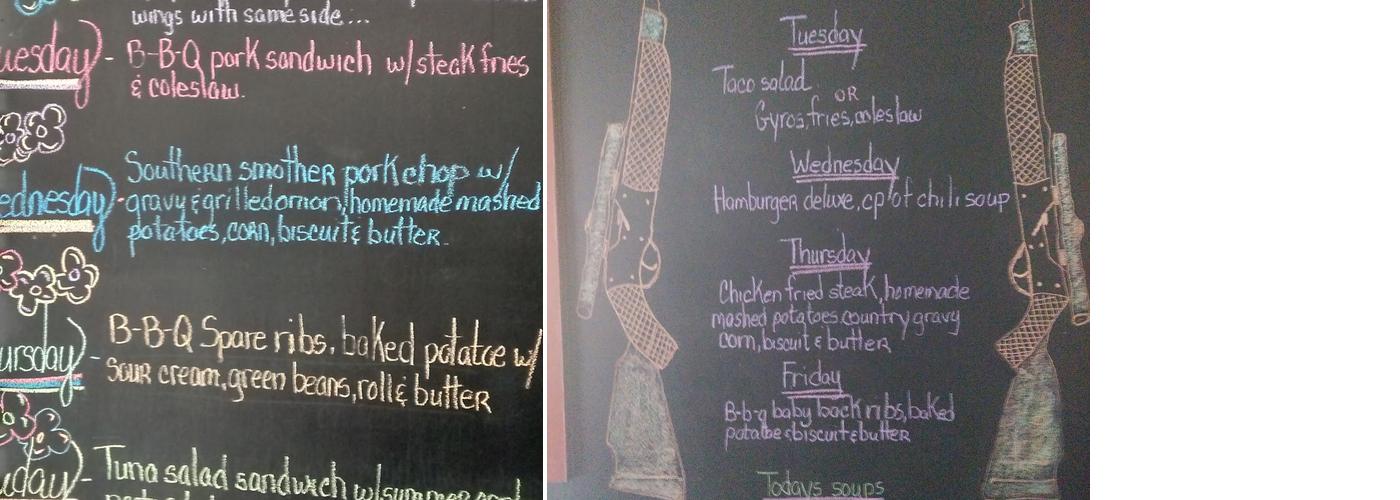 wings with same side...
uesday - B-B-Q pork sandwich w/steak fries
& coleslaw.
Southern smother pork chop w/
ednesday - gravy & grilled onion, homemade mashed
potatoes, corn, biscuit & butter.
B-B-Q Spare ribs, baked potatoe w/
ursday - sour cream, green beans, roll & butter
day - Tuna salad sandwich w/summer
Tuesday
Taco salad
OR
Gyros, fries, coleslaw
Wednesday
Hamburger deluxe, cp of chili soup
Thursday
Chicken fried steak, homemade
mashed potatoes country gravy
corn, biscuit & butter
Friday
B-b-q baby back ribs, baked
potatoe & biscuit & butter
Todays soups